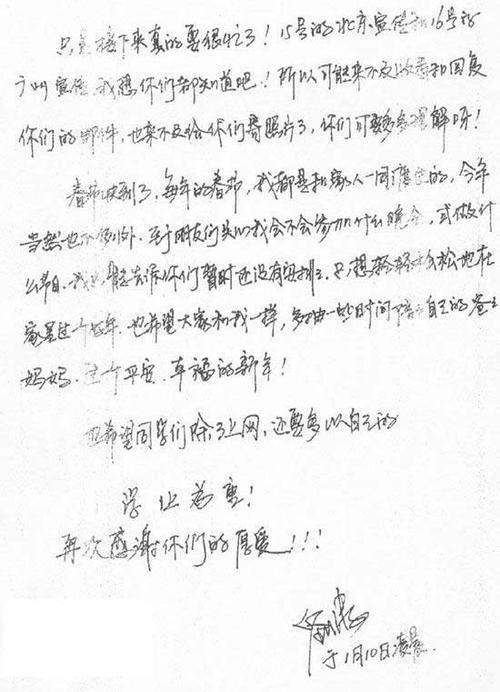 只是接下来真的要很忙了！15号的北京宣传和16号的
广州宣传，我想你们都知道吧！所以可能来不及收看和回复
你们的邮件，也来不及给你们寄照片了，你们可要多多理解呀！
春节快到了，每年的春节，我都是和家人一同度过的，今年
当然也不例外．至于朋友们关心我会不会参加什么晚会，或做什
么节目．我告诉你们暂时还没有安排．只想轻轻松松地在
家里过个好年．也希望大家和我一样，多抽一些时间陪自己的爸爸
妈妈．过个平安．幸福的新年！
也希望同学们除了上网，还要多以自己的
学业为重！
再次感谢你们的厚爱！！！
于1月10日凌晨．